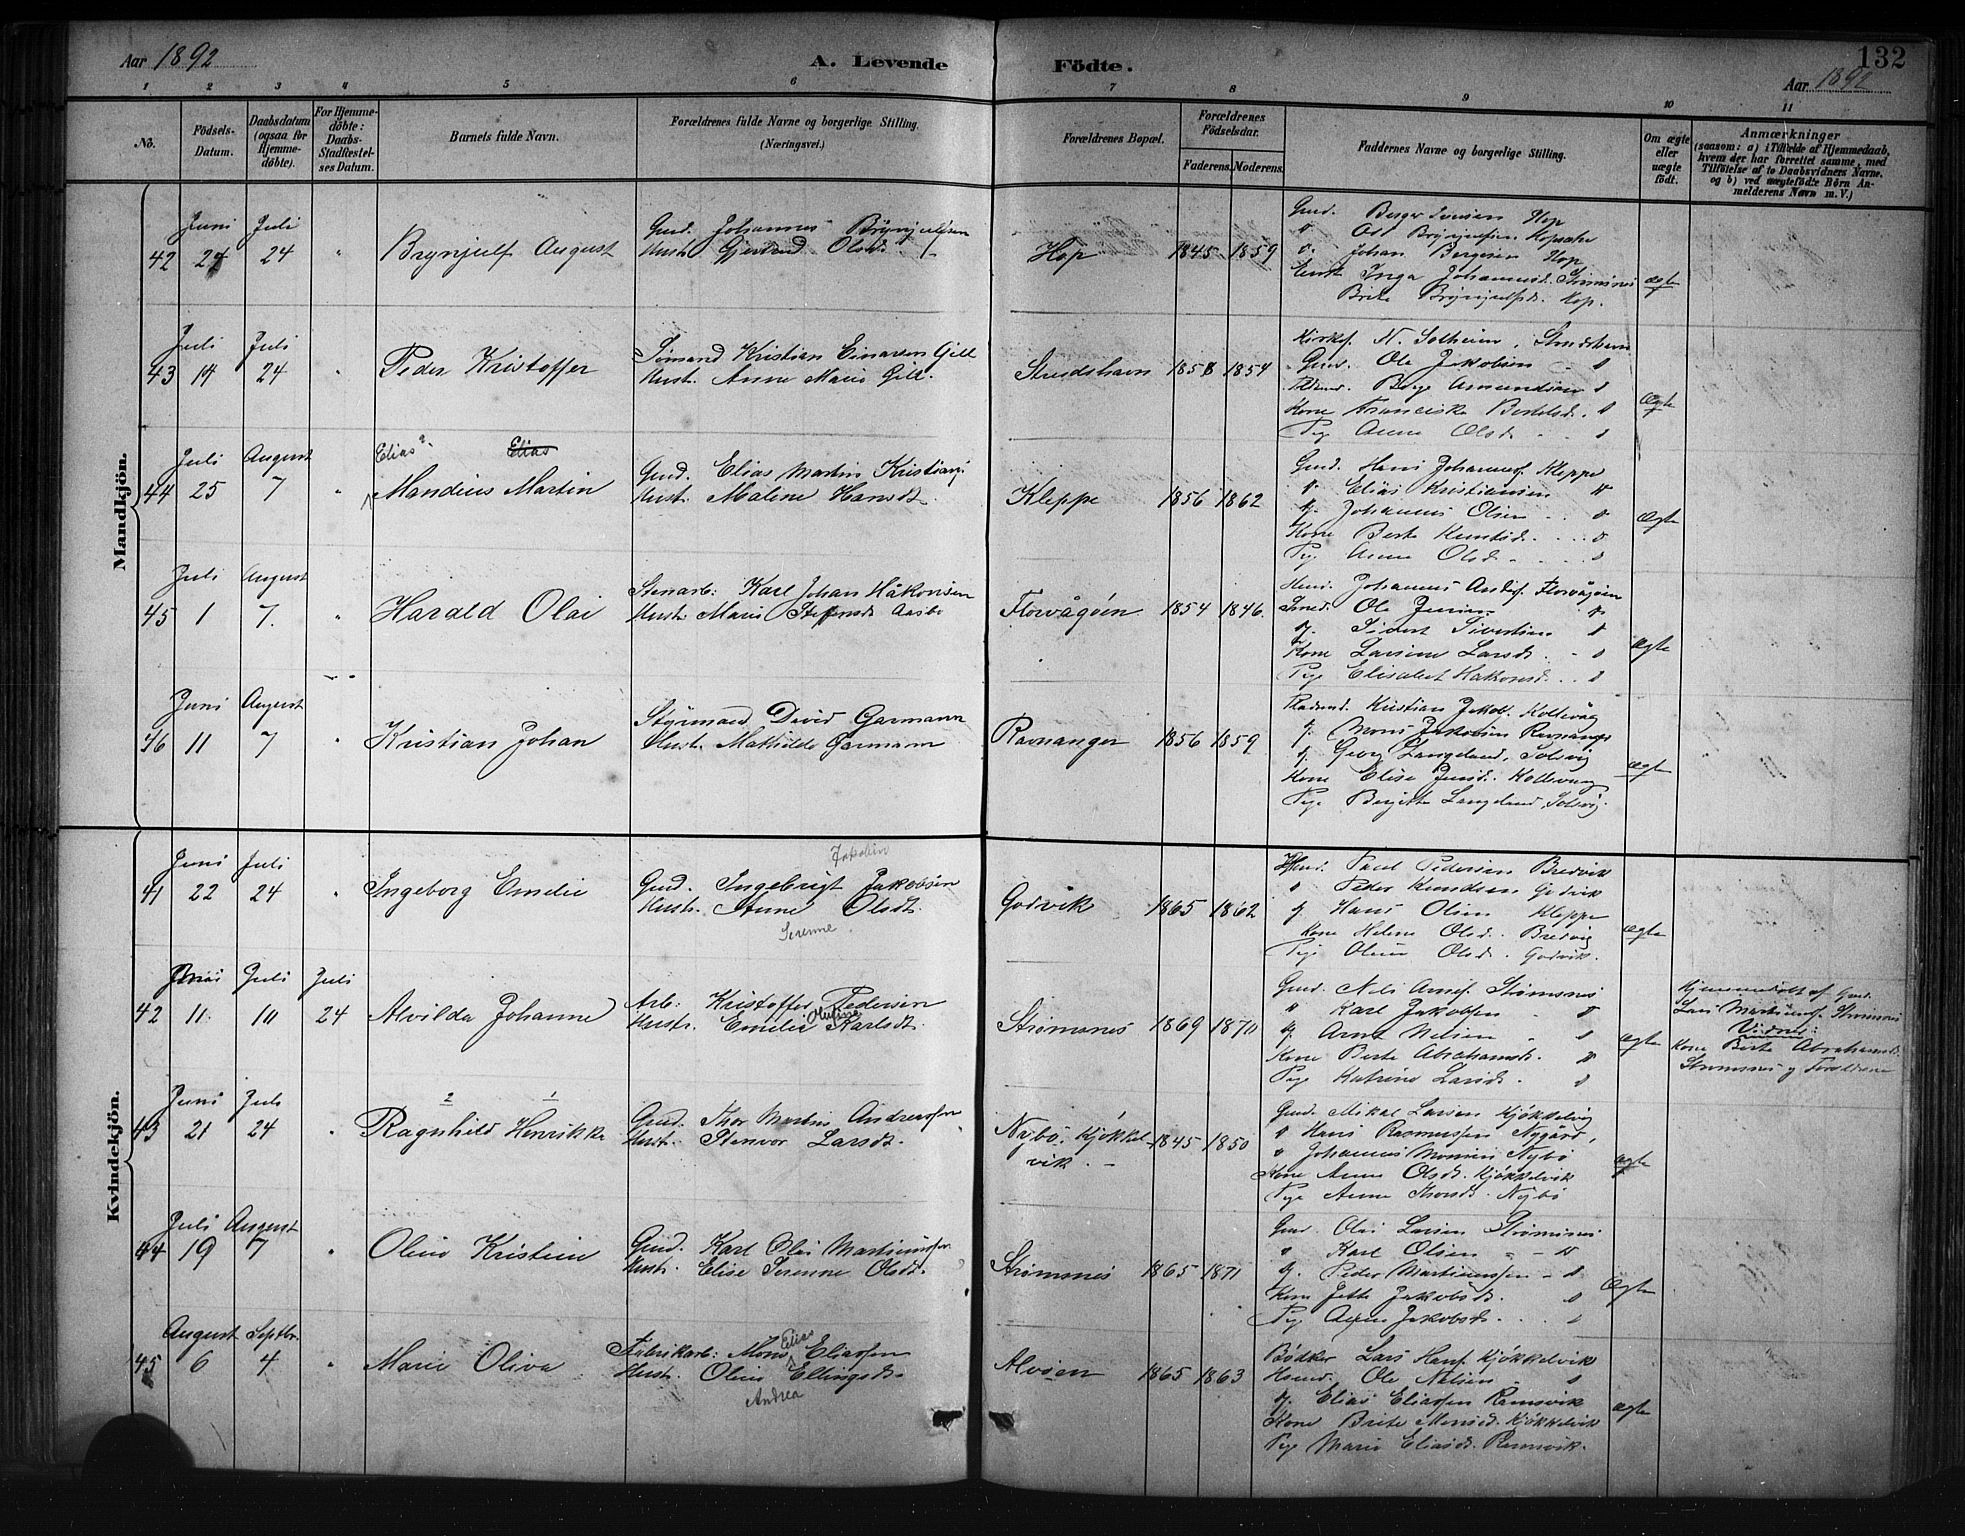 Aar 1892
A. Levende Födte.
132
Aar 1892
1 2 3 4 5 6 7 8 9 10 11
No.
Födsels-Datum.
Daabsdatum (ogsaa for Hjemme-döbte).
For Hjemme-döbte: Daabs-Stadfæstel-ses Datum.
Barnets fulde Navn.
Forældrenes fulde Navne og borgerlige Stilling. (Næringsvei.)
Forældrenes Bopæl.
Forældrenes Födselsdar.
Faderens. Moderens.
Faddernes Navne og borgerlige Stilling.
Om ægte eller uægte födt.
Anmærkninger
(saasom: a) i Tilfælde af Hjemmedaab, hvem der har forrettet samme, med Tilföielse af to Daabsvidners Navne. og b) ved uægtefödte Börn An-melderens Navn m. V.)
Mandkjön.
42 Juni 24 Juli 24 " Brynjulf August
Gmd. Johannes Brynjulfsen
Hust. Gjertrud Olsdt.
Hop 1845 1859
Gmd. Berge Hop
" Brynjulfsen Hopsøke
" Johan Bergesen Hop
Inga Johannesd. Strømsnes
Brite Brynjulfsd. Hop.
ægte
43 Juli 14 Juli 24 " Peder Kristoffer
Kristian Einarsen Gill
Hust. Anne Marie Gill.
Strudshavn 1858 1854
Kirkes. N. Solheim, Strudshavn
Gmd. Ole Jakobsen "
Børge Amundsen "
Kone Franciska Bertelsd. "
Pige Anne Olsd. "
Ægte
44 Juli 25 August 7 " Elias Mandius Martin
Elias
Gmd. Elias Martin Kristians.
Hust. Malene Hansdt.
Kleppe 1856 1862
Gmd. Hans Johanness. Kleppe
" Elias Kristiansen "
" Johannes Olsen "
Kone Berte Knutsd. "
Pig Anne Olsd. "
Ægte
45 Juli 1 August 7. " Harald Olai
Stenarb: Karl Johan Håkonsen
Hust. Marie Steffensdt. Aasbø
Florvågøen 1854 1846.
Johannes Anders. Florvågøen
Ole Jensen "
" Sivert Sivertsen "
Kone Larsine Larsdt. "
Pige Elisabet Hakonsd. "
ægte
46 Juni 11 August 7 " Kristian Johan
Styrmand David Garmann
Hust. Mathilde Garmann
Ravnanger 1856 1859
Kristian Jakobs. Koltevåg
" Mons Jakobsen Ravnanger
" Georg Langeland, Solsvig
Kone Elise Jensd. Koltevaag
Pige Bergitte Langeland, Solsvig.
ægte
Kvindekjön.
41 Juni 22 Juli 24 " Ingeborg Emilie
Jakobin
Gmd. Ingebrigt Jakobsen
Hustr. Anne Olsdt.
Serenne
Godvik 1865 1862
Gmd. Paul Pedersen Bredvik
" Peder Knudsen Godvik
" Hans Olsen Kleppe
Kone Helene Olsd. Bredvig
Pige Oline Olsd. Godvik.
ægte
42 Juni 11. Juli 10 Juli 24 Alvilda Johanne
Arb: Kristoffer Pedersen
Hustr. Emilie Olufine Karlsdt.
Strømsnes 1869 1870
Gmd. Nils Arnes. Strømsnes
" Karl Jakobsen "
" Arne Nilsen "
Kone Berte Abrahamsd. "
Pige Katrine Larsd. "
ægte
Hjemmedøbt af Gmd.
Lars Martinus. Strømsnes
Vidner:
Kone Berte Abrahamsd.
Strømsnes og Forældrene
43 Juni 21 Juli 24 " Ragnhild Henrikke
2 1
Gmd. Thor Martin Andreassen
Hust. Stenvor Larsdt.
Nybø. Kjøkkelvik. 1845 1850
Gmd. Mikal Larsen Kjøkkelvig
" Hans Rasmussen Nygård,
" Johannes Monsen Nybø
Kone Anne Olsdt. Kjøkkelvik
Pige Anne Thorsd. Nybø
ægte
44 Juli 19 August 7 " Oline Kristine
Gmd. Karl Olai Martinussen
Hust. Elise Serenne Olsdt.
Strømsnes 1865 1871
Gmd. Olai Larsen Strømsnes
" Karl Olsen "
" Peder Martinussen "
Kone Jette Jakobsd. "
Pig Jakobsd. "
Ægte
45 August 6 Septbr. 4 " Marie Oliva
Fabrikarb: Mons Elias Eliassen
Hust. Oline Ellingsdt.
Andrea
Alvøen 1865 1863
Bødker Lars Hans. Kjøkkelvik
Ole Nilsen "
" Elias Eliassen Ramsvik
Kone Brite Monsd. Kjøkkelvik
Pige Marie Eliasdt. Ramsvik.
ægte